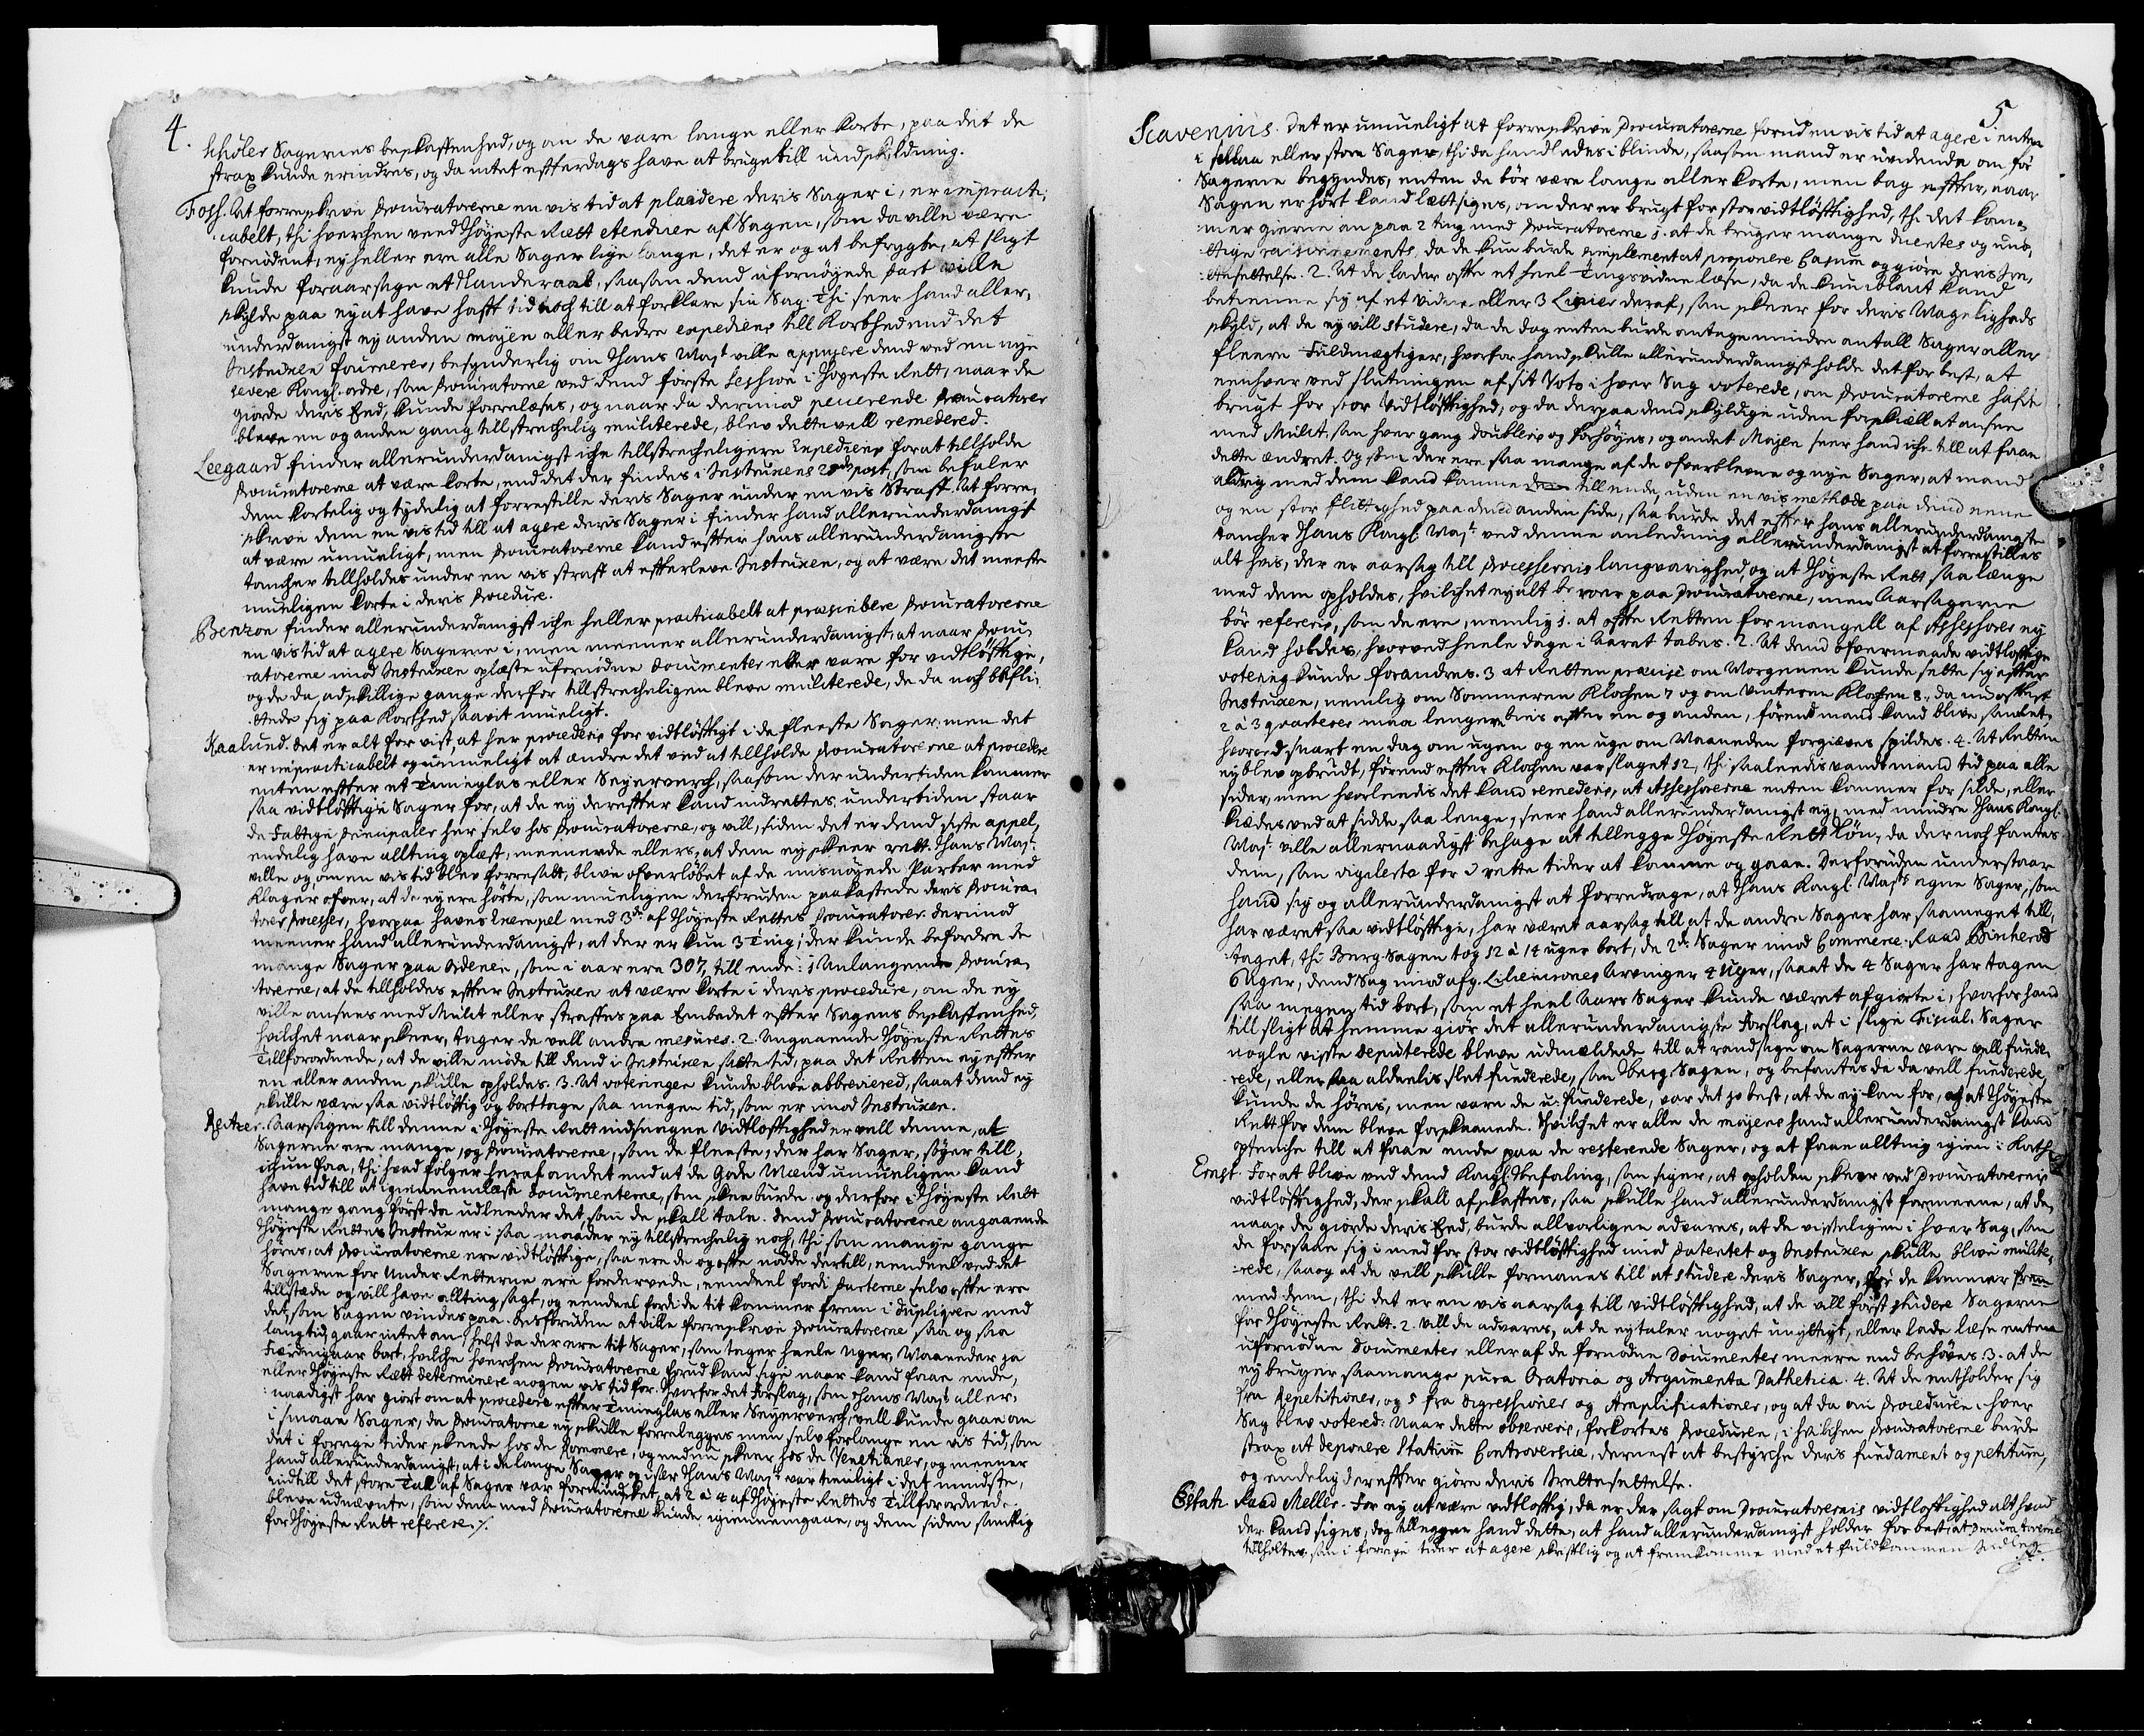 4.
Sagernes beskaffenhed, og om de vare lange eller korte, paa det de
strax kunde erindres, og da intet effterdags have at bruge till undskyldning.
Foss. At forreskrive Procuratorerne en vis tid at plaidere deris Sager i, er impracti-
cabelt, thi hverchen veed Høyeste Rætt etenduen af Sagen, som da ville være
fornødent, ey heller ere alle Sager lige lange, det er og at befrygte, at sligt
kunde foraarsage et Klanderaab, saasom dend ufornøyede Part ville
skylde paa ey at have hafft tid noch till at forklare sin Sag. Thi seer hand aller-
underdanigst ey anden moyen eller bedre expedient till Korthed end det
Instruxen fournerer, besynderlig om Hans Mayt ville appuyere dend ved en nye
severe Kongl. ordre, som Procuratorerne ved dend første Session i Høyeste Rett, naar de
giorde deris Eed, kunde forrelæses, og naar da derimod peccerende Procuratorer
bleve en og anden gang tillstrechelig mulcterede, blev dette vell remedered.
Leegaard finder allerunderdanigst iche tillstrecheligere Expedienz for at tillholde
Procuratorerne at være korte, end det der findes i Instruxens post, som befaler
dem kortelig og tydelig at forrestille deris Sager under en vis Straff. At forre-
skrive dem en vis tid till at agere deris Sager i finder hand allerunderdanigst
at være umueligt, men Procuratorerne kand effter hans allerunderdanigste
tancher tillholdes under en vis straff at effterleve Instruxen, og at være det meeste
mueligen korte i deris Procedure.
Benzon finder allerunderdanigst iche heller practicabelt at præscribere Procuratorerne
en vis tid at agere Sagerne i, men meener allerunderdanigst, at naar Procu-
ratorerne imod Instruxen oplæste ufornødne Documenter eller vare for vidtløfftige,
og de da adskillige gange derfor tillstrecheligen bleve mulcterede, de da noch beflit-
tede sig paa Korthed saavit mueligt.
Kaalund. Det er alt for vist, at her procederis for vidtløfftigt i de fleeste Sager, men det
er impracticabelt og umueligt at ændre det ved at tillholde Procuratorerne at procedere
enten effter et Timeglas eller Seyerverch, saasom der undertiden kommer
saa vidtløfftige Sager for, at de ey dereffter kand indrettes, undertiden staar
de Fattige Principaler her selv hos Procuratorerne, og vill, siden det er dend siste appel,
endelig have allting oplæst, meenende ellers, at dem ey skeer rett. Hans Mayt
ville og, om en vis tid blev forresatt, blive ofverløbet af de misnøyede Parter med
Klager ofver, at de ey ere hørte, som mueligen derforuden paakastede deris Procura-
torer Processer, hvorpaa haves Exempel med 3de af Høyeste Rettes Procuratorer. Derimod
meener hand allerunderdanigst, at der er kun 3 Ting, der kunde befordre de
mange Sager paa Ordenen, som i aar ere 307, till ende: 1 Anlangende Procura-
torerne, at de tillholdes effter Instruxen at være korte i deris procedure, om de ey
ville ansees med Mulct eller straffes paa Embedet effter Sagens beskaffenhed,
hvilchet naar skeer, tager de vell andre mesures. 2. Angaaende Høyeste Rettes
Tillforordnede, at de ville møde till dend i Instruxen satte tid, paa det Retten ey effter
en eller anden skulle opholdes. 3. At voteringen kunde blive abbreviered, saa at dend ey
skulle være saa vidtløfftig og borttage saa megen tid, som er imod Instruxen.
Reitzer. Aarsagen till denne i Høyeste Rett vidtløfftighed er vell denne, at
Sagerne ere mange, og Procuratorerne, som de fleeste, der har Sager, søger till,
ichun faa, thi hvad følger heraf andet end at de Gode Mænd umueligen kand
have tid till at igiennemlæse Documenterne, som skee burde, og derfor i Høyeste Rett
mange gang først da udleeder det, som de skall tale. Dend Procuratorerne angaaende
Høyeste Rettes Instrux er i saa maader ey tillstrechelig noch, thi som mange gange
høres, at Procuratorerne ere vidtløfftige, saa ere de og offte nødde dertill, eendeel ved det
Sagerne for Under Retterne ere fordervede, eendeel fordi Parterne selv offte ere
tillstæde og vill have allting sagt, og eendeel fordi de tit kommer frem i Dupliqven med
det, som Sagen vindes paa. Desforuden at ville forreskrive Procuratorerne saa og saa
lang tid, gaar intet an, helst da der ere tit Sager, som tager heele Uger, Maaneder ja
Fierdingaar bort, hvilche hverchen Procuratorerne forud kand sige naar kand faae ende,
eller Høyeste Rett determinere nogen vis tid for. Hvorfor det Forslag, som Hans Mayt aller-
naadigst har giort om at procedere effter Timeglas eller Seyerverch, vell kunde gaae an
i smaae Sager, da Procuratorerne ey skulle forrelegges men selv forlange en vis tid, som
det i forrige tider skeede hos de Romanere, og endnu skeer hos de Venetianer, og meener
hand allerunderdanigst, at i de lange Sager og især Hans Mayt var tienligt i det mindste,
indtill det store Tall af Sager var formindsket, at 2 à 4 af Høyeste Rettes Tillforordnede
bleve udnævnte, som dem med Procuratorerne kunde igiennemgaae, og dem siden samtlig
for Høyeste Rett referere ./.
5.
Scavenius. Det er umueligt at forreskrive Procuratorerne forud en vis tid at agere i enten
i smaa eller store Sager, thi da handlades i blinde, saasom mand er uvidende om før
Sagerne begyndes, enten de bør være lange eller korte, men bag effter, naar
Sagen er hørt kand lætt siges, om der er brugt for stor vidtløfftighed, thi det kom-
mer gierne an paa 2 ting med Procuratorerne 1. at de bruger mange og
raisonnements, da de kun burde simplement at proponere Casum og giøre deris Irre-
ttesettelse. 2. At de lader offte et heel Tingsvidne læse, da de kun blant kand
betienne sig af et vidne eller 3 Linier deraf, som skeer for deris Magelighds
skyld, at de ey vill studere, da de dog enten burde antage mindre antall Sager eller
fleere Fuldmægtiger, hvorfor hand skulle allerunderdanigst holde det for best, at
eenhver ved slutningen af sit Voto i hver Sag voterede, om Procuratorerne hafde
brugt for stor Vidtløfftighed, og da derpaa dend skyldige uden forskiæll at ansee
med Mulct, som hver gang doubleris og forhøyes, og andet Moyen seer hand iche till at faae
dette ændret. Og som der ere saa mange af de ofverblevne og nye Sager, at mand
aldrig med dem kand komme till ende, uden en vis methode paa dend eene
og en stor flittighed paa dend anden side, saa burde det effter hans allerunderdanigste
tancher Hans Kongl. Mayt ved denne anledning allerunderdanigst at forrestilles
alt hvis, der er aarsag till Processernis langvarighed, og at Høyeste Rett saa længe
med dem opholdes, hvilchet ey alt beroer paa Procuratorerne, men Aarsagerne
bør refereris, som de ere, nemlig 1. at offte Retten for mangell af Assessorer ey
kand holdes, hvorved heele dage i Aaret tabes. 2. At dend ofvermaade vidtløfftige
votering kunde forandres. 3 at Retten præcise om Morgenen kunde sette sig effter
Instruxen, nemlig om Sommeren Klochen 7 og om Vinteren Klochen 8, da nu offtest
2 à 3 qvarteer maa lenger bies effter en og anden, førend mand kand blive samlet,
hvorved snart en dag om ugen og en uge om Maaneden forgieves spildes. 4. At Retten
ey blev opbrudt, førend effter Klochen var slaget 12, thi saaleedis vandt mand tid paa alle
sider, men hvorleedis det kand remederis, at Assessorerne enten kommer for silde, eller
kiædes ved at sidde saa lange, seer hand allerunderdanigst ey, med mindre Hans Kongl.
Mayt ville allernaadigst behage at tillegge Høyeste Rett Løn, da der noch fantes
dem, som vigilerte for i rette tider at komme og gaae. Derforuden understaar
hand sig og allerunderdanigst at forredrage, at Hans Kongl. Mayts egne Sager, som
har været saa vidtløfftige, har været aarsag till at de andre Sager har saameget till-
taget, thi Berg-Sagen tog 12 à 14 uger bort, de 2de Sager imod Commerce-Raad Bircherod
6 Uger, dend Sag imod afg. Liliencrones Arvinger 4 Uger, saa at de 4 Sager har tagen
saa megen tid bort, som et heel Aars Sager kunde været afgiorte i, hvorfor hand
till sligt at hemme giør det allerunderdanigste Forslag, at i slige Fiscal-Sager
nogle visse deputerede bleve udmeldede till at randsage om Sagerne vare vell funde-
rede, eller saa aldeelis slet funderede, som Berg-Sagen, og befantes de da vell funderede
kunde de høres, men vare de u-funderede, var det jo best, at de ey kom for, og at Høyeste
Rett for dem bleve forskaanede. Hvilchet er alle de moyens hand allerunderdanigst kand
optenche till at faae ende paa de resterende Sager, og at faae allting igien i Lave
Ernst. For at blive ved dend Kongl. Befaling, som siger, at opholden skeer ved Procuratorernis
vidtløfftighed, der skall afskaffes, saa skulle hand allerunderdanigst formeene, at de,
naar de giorde deris Eed, burde allvorligen advares, at de visseligen i hver Sag, som
de forsaae sig i med for stor vidtløfftighed imod Patentet og Instruxen skulle blive mulcte-
rede, saa og at de vell skulle formanes till at studere deris Sager, før de kommer frem
med dem, thi det er en vis aarsag till vidtløfftighed, at de vill først studere Sagerne
for Høyeste Rett. 2. vill de advares, at de ey taler noget unyttigt, eller lade læse enten
ufornødne Documenter eller af de fornødne Documenter meere end behøves. 3. at de
ey bruger saa mange pura Oratoria og Argumenta Pathetica. 4. At de entholder sig
fra Repetitioner, og 5 fra digressioner og Amplificationer, og at da om Proceduren i hver
Sag blev votered: Naar dette observeris, forkortes Proceduren, i hvilchen Procuratorerne burde
strax at deponere Statum Controversiæ, dernest at bestyrche deris fundament og petitum,
og endelig dereffter giøre deris Irettesettelse.
Estats Raad Meller. For ey at være vidtløfftig, da er der sagt om Procuratorernis vidtløfftighed alt hvad
der kand siges, dog tillegger hand dette, at hand allerunderdanigst holder for best, at Procuratorerne
tillholtes, som i forrige tider at agere skrifftlig og at fremkomme med et fuldkommen Indleg